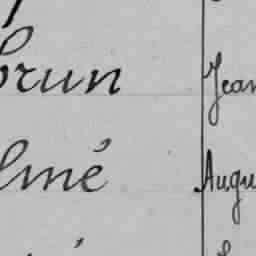 brun Jean
lmé Augu